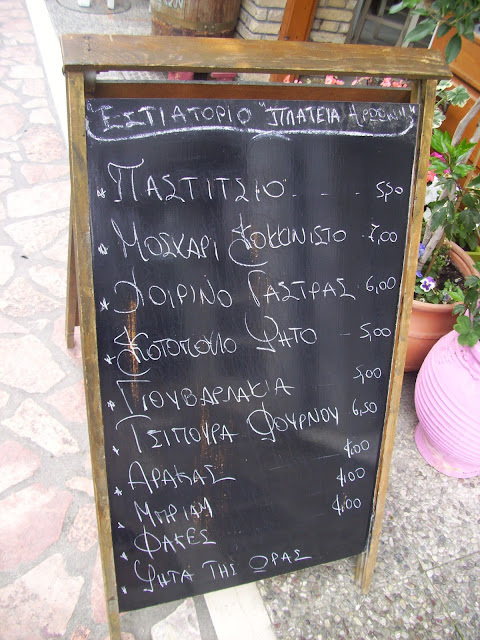 ΕΣΤΙΑΤΟΡΙΟ "ΠΛΑΤΕΙΑ
* ΠΑΣΤΙΤΣΙΟ - - - 5,50
* ΜΟΣΚΑΡΙ ΚΟΚΚΙΝΙΣΤΟ - 7,00
* ΧΟΙΡΙΝΟ ΓΑΣΤΡΑΣ - 6,00
* ΚΟΤΟΠΟΥΛΟ ΨΗΤΟ - 5,00
* ΓΙΟΥΒΑΡΛΑΚΙΑ 5,00
* ΤΣΙΠΟΥΡΑ ΦΟΥΡΝΟΥ 6,50
* ΑΡΑΚΑΣ 4,00
* ΜΠΡΙΑΜ 4,00
* ΦΑΚΕΣ 4,00
* ΨΗΤΑ ΤΗΣ ΩΡΑΣ